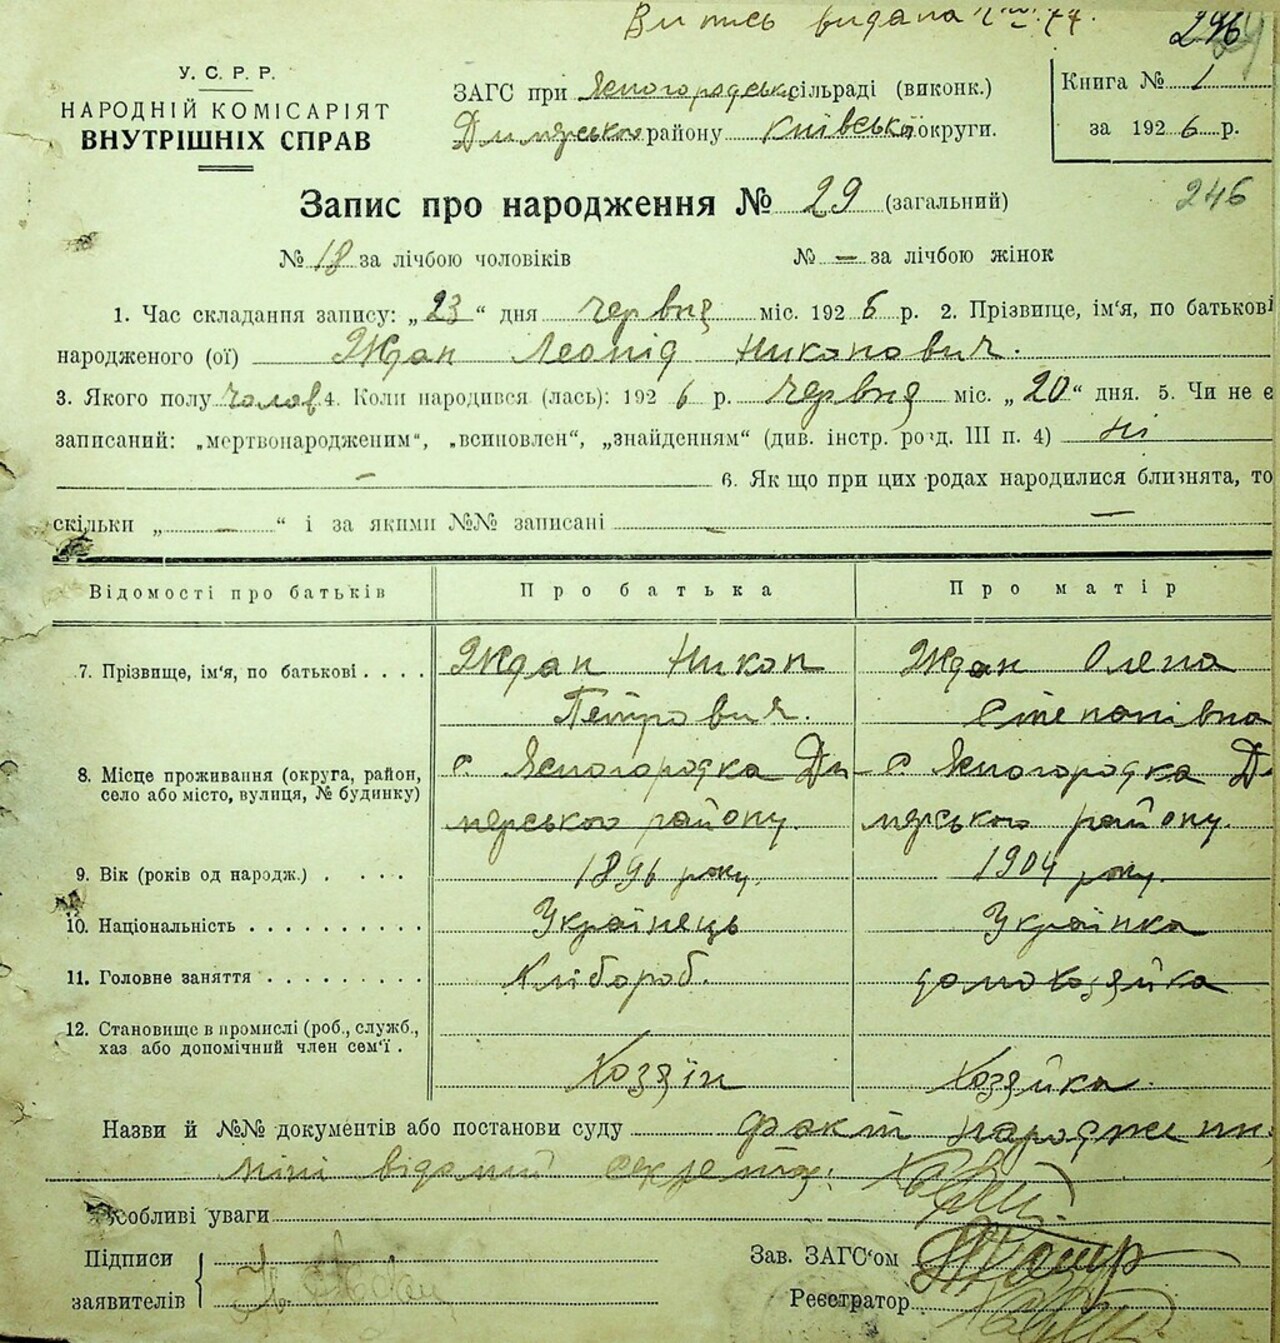 Витпись видана
246
У. С. Р. Р.
НАРОДНІЙ КОМІСАРІЯТ
ВНУТРІШНІХ СПРАВ
ЗАГС при Ясногородськ. сільраді (виконк.)
Димерсько району Київської округи.
Книга № 1
за 1926 р.
Запис про народження № 29 (загальний)
246
№ 18 за лічбою чоловіків № — за лічбою жінок
1. Час складання запису: „23“ дня червня міс. 1926 р. 2. Прізвище, ім‘я, по батькові
народженого (ої) Ждан Леонід Никонович.
3. Якого полу чолов 4. Коли народився (лась): 1926 р. червня міс. „20“ дня. 5. Чи не є
записаний: „мертвонародженим“, „всиновлен“, „знайденням“ (див. інстр. розд. III п. 4) ні
— 6. Як що при цих родах народилися близнята, то
скільки „ — “ і за якими №№ записані — —
Відомості про батьків Про батька Про матір
7. Прізвище, ім‘я, по батькові . . . . Ждан Никон Ждан Олена
Петрович. Степанівна
8. Місце проживання (округа, район,
село або місто, вулиця, № будинку)
с. Ясногородка Ди- с. Ясногородка Д
мерського району. мерського району.
9. Вік (років од народж.) . . . . 1896 року. 1904 року.
10. Національність . . . . . . . . . . Українець Українка
11. Головне заняття . . . . . . . . . Хлібороб. домохозяйка
12. Становище в промислі (роб., служб.,
хаз або допомічний член сем‘ї .
Хозяїн Хозяйка.
Назви й №№ документів або постанови суду факт народжен
мені відомий секретар:
Особливі уваги
Підписи
заявителів
Зав. ЗАГС‘ом
Реєстратор